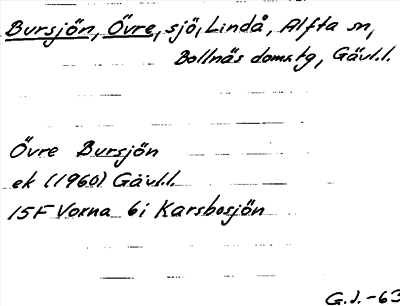 Bursjön, Övre, sjö, Lindå, Alfta sn,
Bollnäs domstg, Gävl.l.
Övre Bursjön
ek (1960) Gävl.l.
15F Vorna 6i Karsbosjön
G.J.-63